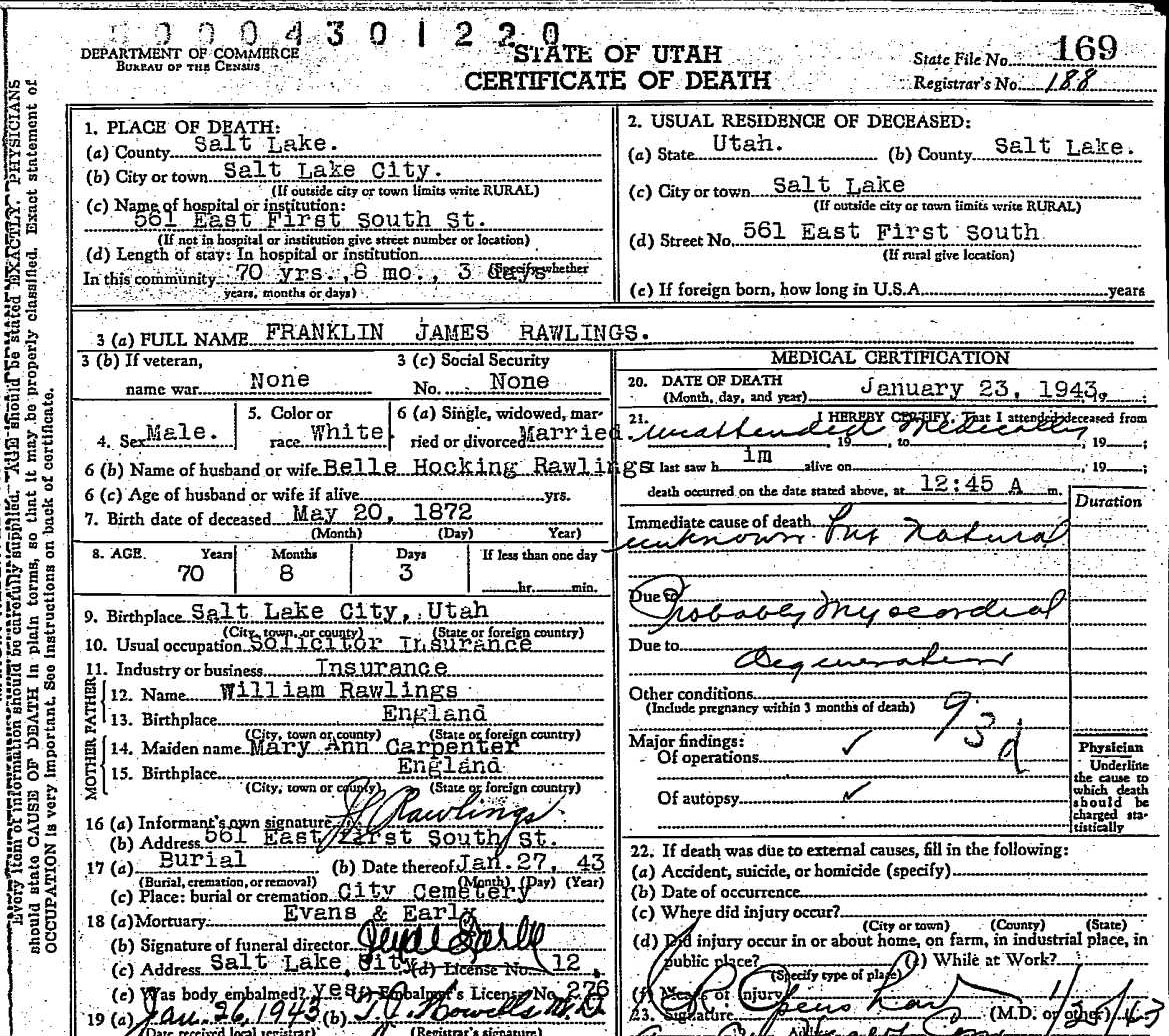 0000 4301220
DEPARTMENT OF COMMERCE
BUREAU OF THE CENSUS
STATE OF UTAH
CERTIFICATE OF DEATH
State File No. 169
Registrar's No. 188
Every item of information should be carefully supplied. AGE should be stated EXACTLY. PHYSICIANS
should state CAUSE OF DEATH in plain terms, so that it may be properly classified. Exact statement of
OCCUPATION is very important. See instructions on back of certificate.
1. PLACE OF DEATH:
(a) County Salt Lake.
(b) City or town Salt Lake City.
(If outside city or town limits write RURAL)
(c) Name of hospital or institution:
561 East First South St.
(If not in hospital or institution give street number or location)
(d) Length of stay: In hospital or institution
(Specify whether
In this community 70 yrs., 8 mo., 3 days
years, months or days)
2. USUAL RESIDENCE OF DECEASED:
(a) State Utah. (b) County Salt Lake.
(c) City or town Salt Lake
(If outside city or town limits write RURAL)
(d) Street No. 561 East First South
(If rural give location)
(e) If foreign born, how long in U.S.A. years
3 (a) FULL NAME FRANKLIN JAMES RAWLINGS.
3 (b) If veteran,
name war None
3 (c) Social Security
No. None
4. Sex Male.
5. Color or
race White
6 (a) Single, widowed, mar-
ried or divorced Married
6 (b) Name of husband or wife Belle Hocking Rawlings
6 (c) Age of husband or wife if alive yrs.
7. Birth date of deceased May 20, 1872
(Month) (Day) Year)
8. AGE Years Months Days If less than one day
70 8 3 hr. min.
9. Birthplace Salt Lake City, Utah
(City, town, or county) (State or foreign country)
10. Usual occupation Solicitor Insurance
11. Industry or business Insurance
FATHER
12. Name William Rawlings
13. Birthplace England
(City, town or county) (State or foreign country)
MOTHER
14. Maiden name Mary Ann Carpenter
15. Birthplace England
(City, town or county) (State or foreign country)
16 (a) Informant's own signature Rawlings
(b) Address 561 East First South St.
17 (a) Burial (b) Date thereof Jan. 27, 43
(Burial, cremation, or removal) (Month) (Day) (Year)
(c) Place: burial or cremation City Cemetery
18 (a) Mortuary Evans & Early
(b) Signature of funeral director
(c) Address Salt Lake City (d) License No. 12
(e) Was body embalmed? yes (f) Embalmer's License No. 276
19 (a) Jan. 26, 1943 (b)
(Date received local registrar) (Registrar's signature)
MEDICAL CERTIFICATION
20. DATE OF DEATH January 23, 1943,
(Month, day, and year)
21. I HEREBY CERTIFY, That I attended deceased from
unattended Medically 19 to , 19 ;
I last saw h im alive on , 19 ;
death occurred on the date stated above, at 12:45 A m.
Duration
Immediate cause of death
unknown but Natural
Due to
Probably Myocardial
Due to
degeneration
Other conditions
(Include pregnancy within 3 months of death)
93d
Major findings:
Of operations ✓
Of autopsy ✓
Physician
Underline
the cause to
which death
should be
charged sta-
tistically
22. If death was due to external causes, fill in the following:
(a) Accident, suicide, or homicide (specify)
(b) Date of occurrence
(c) Where did injury occur?
(City or town) (County) (State)
(d) Did injury occur in or about home, on farm, in industrial place, in
public place? (e) While at Work?
(Specify type of place)
(f) Means of Injury
23. Signature (M.D. or other)